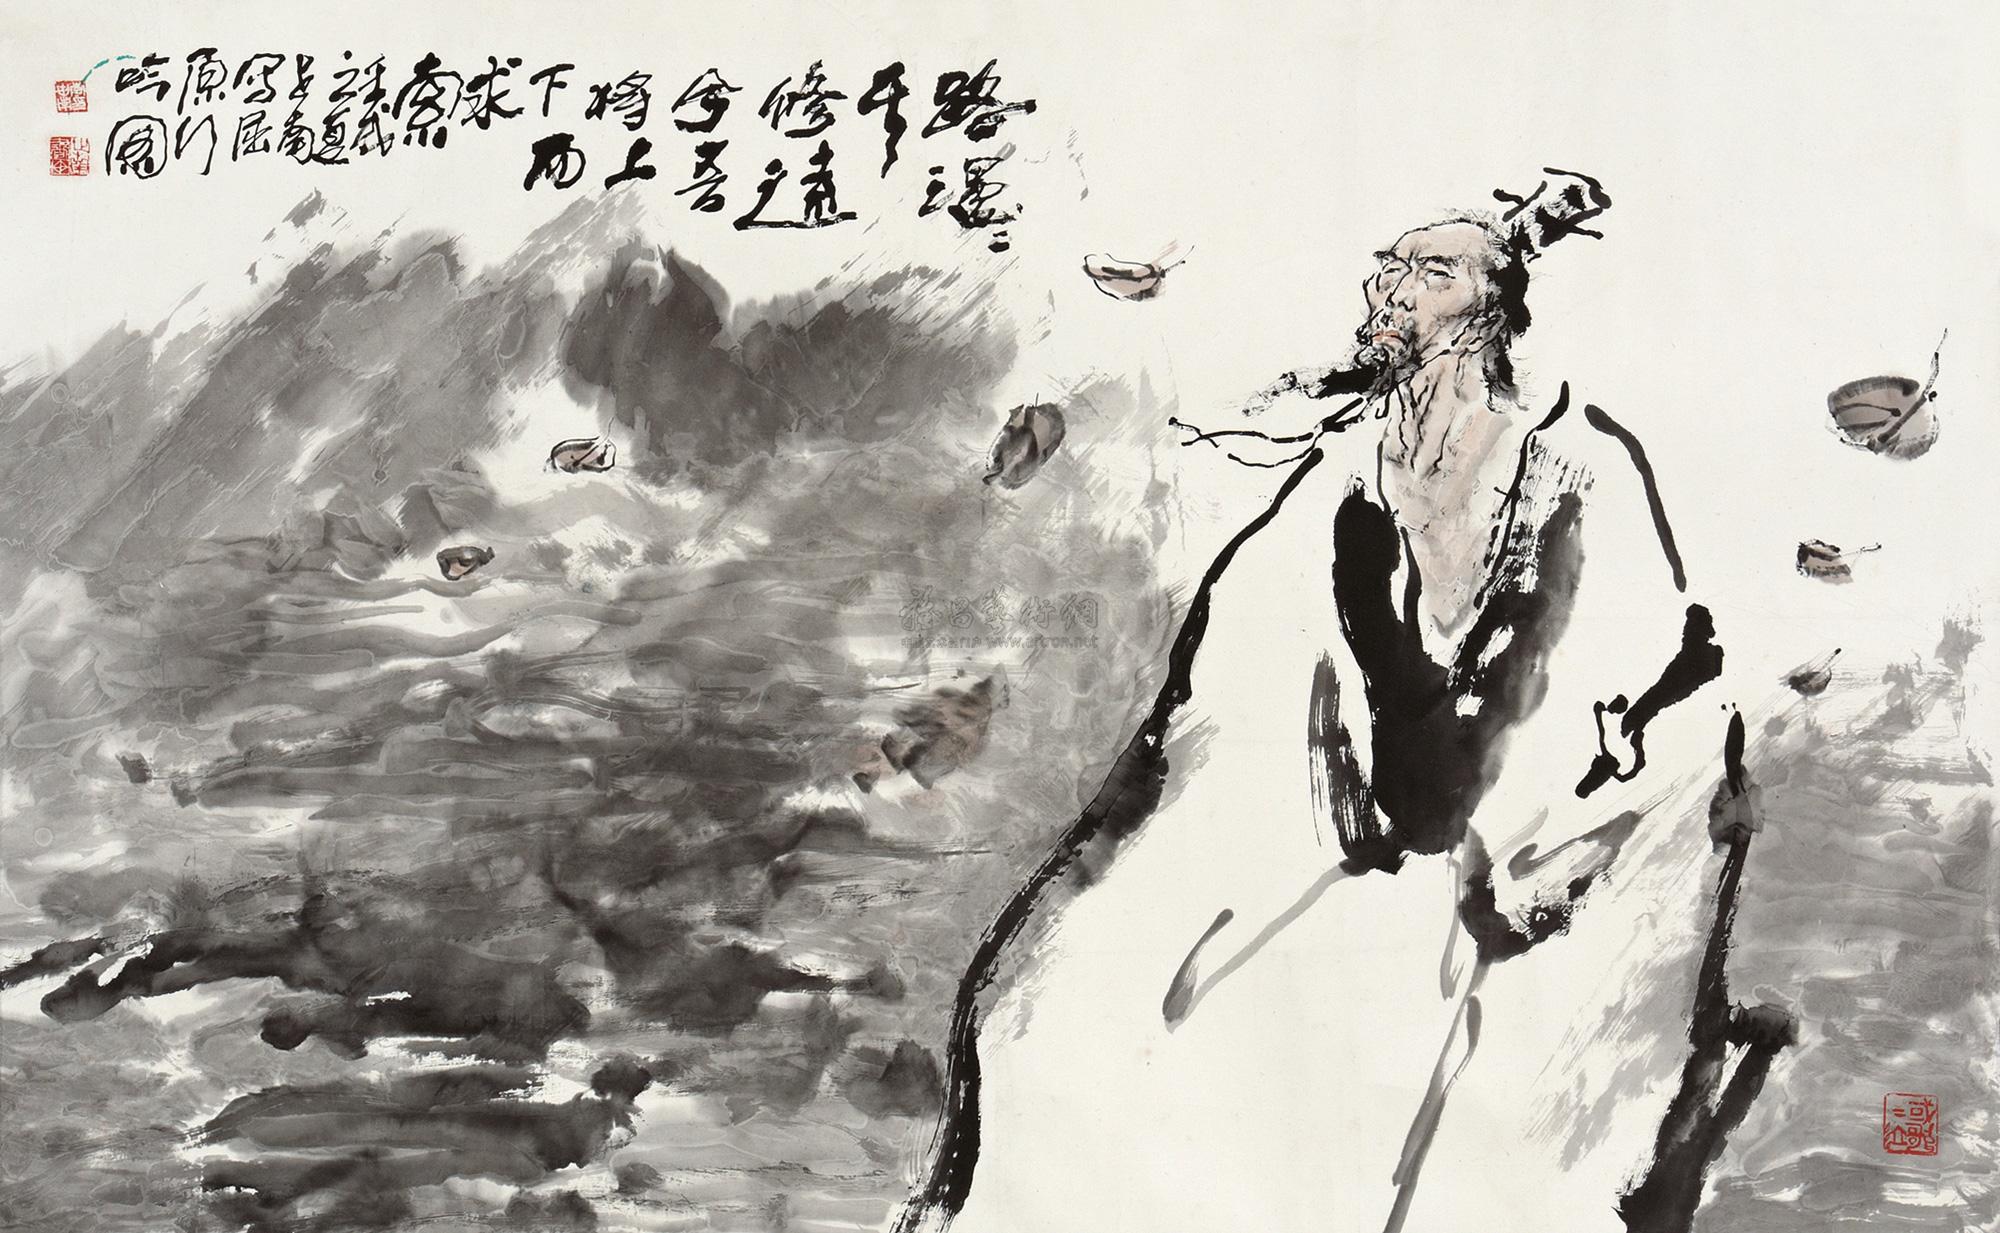 路漫〻
其
修遠
兮吾
將上
下而
求
索
之夏
南
寫屈
原行
吟圖
雅昌藝術網
www.artron.net